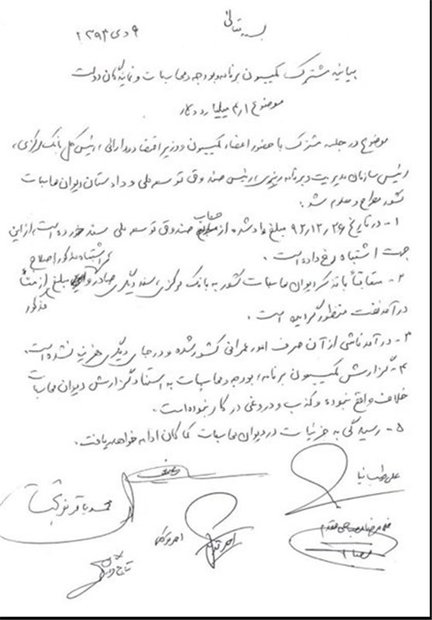 بسمه تعالی
۹ دی ۱۳۹۳
بیانیه مشترک کمیسیون برنامه و بودجه و محاسبات و نمایندگان دولت
موضوع ۴/۱ میلیارد دلار
موضوع در جلسه مشترک با حضور اعضاء کمیسیون و وزیر اقتصاد و دارائی، رئیس کل بانک مرکزی،
رئیس سازمان مدیریت و برنامه ریزی، رئیس صندوق توسعه ملی و دادستان دیوان محاسبات
کشور مطرح و معلوم شد:
۱- در تاریخ ۹۲/۱۲/۲۶ مبلغ یاد شده از حساب صندوق توسعه ملی سند خورده است، از این
جهت اشتباه رخ داده است.
۲- متعاقباً با تذکر دیوان محاسبات کشور به بانک مرکزی، سند دیگری صادر و اشتباه مذکور اصلاح مبلغ از
درآمد نفت منظور گردیده است. مذکور
۳- درآمد ناشی از آن صرف امور عمرانی کشور شده و در جای دیگری هزینه نشده است.
۴- گزارش کمیسیون برنامه، بودجه و محاسبات به استناد گزارش دیوان محاسبات
خلاف واقع نبوده و کذب و دروغی در کار نبوده است.
۵- رسیدگی به جزئیات در دیوان محاسبات کماکان ادامه خواهد یافت.
علی طیب نیا
محمد باقر نوبخت
غلامرضا تاجگردون